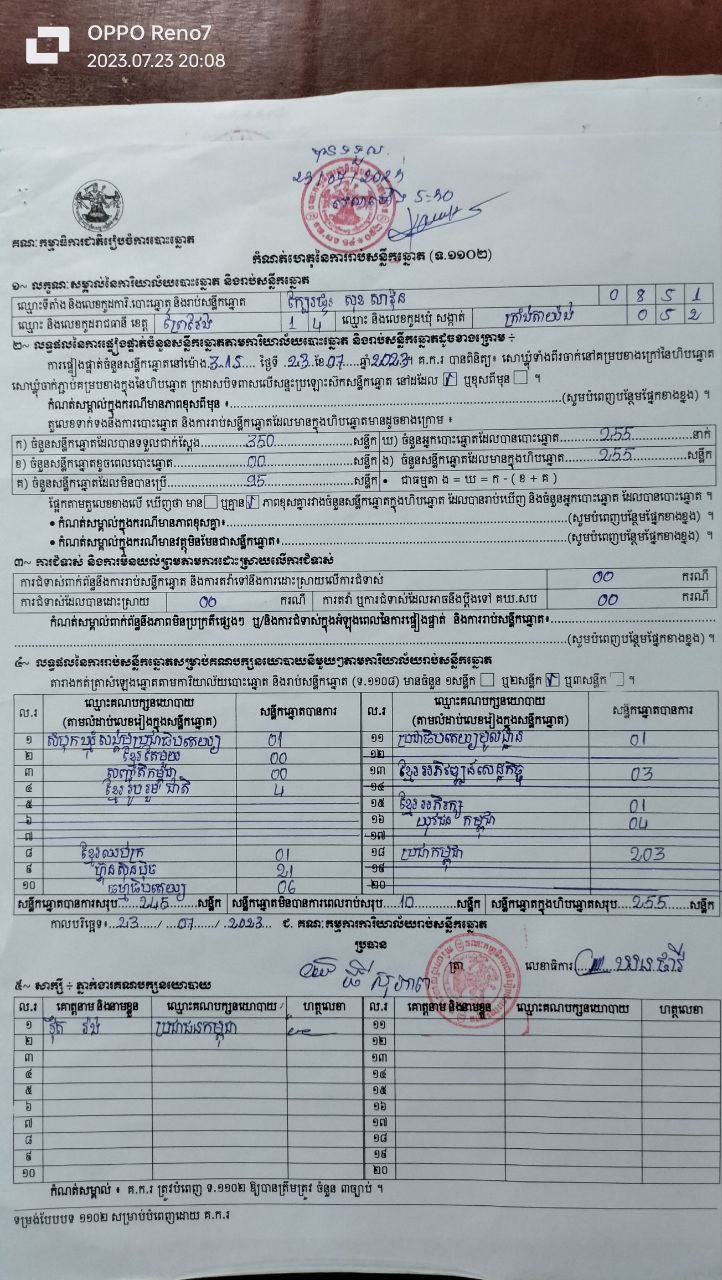 OPPO Reno7
2023.07.23 20:08
បានទទួល
23/07/2023
5:30
គណៈកម្មាធិការជាតិរៀបចំការបោះឆ្នោត
កំណត់ហេតុនៃការរាប់សន្លឹកឆ្នោត (ទ.១១០២)
១~ លក្ខណៈសម្គាល់នៃការិយាល័យបោះឆ្នោត និងរាប់សន្លឹកឆ្នោត
ឈ្មោះទីតាំង និងលេខកូដការិ.បោះឆ្នោត និងរាប់សន្លឹកឆ្នោត 0 8 5 1
ឈ្មោះ និងលេខកូដរាជធានី ខេត្ត ព្រៃវែង 1 4 ឈ្មោះ និងលេខកូដឃុំ សង្កាត់ 0 5 2
២~ លទ្ធផលនៃការផ្ទៀងផ្ទាត់ចំនួនសន្លឹកឆ្នោតតាមការិយាល័យបោះឆ្នោត និងរាប់សន្លឹកឆ្នោតដូចខាងក្រោម ÷
ការផ្ទៀងផ្ទាត់ចំនួនសន្លឹកឆ្នោតនៅម៉ោង 3.15 ថ្ងៃទី 23 ខែ 07 ឆ្នាំ 2023។ គ.ក.រ បានពិនិត្យ៖ សោឃ្លុំទាំងពីរចាក់នៅគម្របខាងក្រៅនៃហិបឆ្នោត
សោឃ្លុំចាក់ភ្ជាប់គម្របខាងក្នុងនៃហិបឆ្នោត ក្រដាសបិទពាសលើសន្ទះប្រឡោះសឹកសន្លឹកឆ្នោត នៅដដែល ☑ ឬខុសពីមុន ☐ ។
កំណត់សម្គាល់ក្នុងករណីមានភាពខុសពីមុន ៖ (សូមបំពេញបន្ថែមផ្នែកខាងខ្នង) ។
តួលេខទាក់ទងនឹងការបោះឆ្នោត និងការរាប់សន្លឹកឆ្នោតដែលមានក្នុងហិបឆ្នោតមានដូចខាងក្រោម ៖
ក) ចំនួនសន្លឹកឆ្នោតដែលបានទទួលជាក់ស្តែង 350 សន្លឹក ឃ) ចំនួនអ្នកបោះឆ្នោតដែលបានបោះឆ្នោត 255 នាក់
ខ) ចំនួនសន្លឹកឆ្នោតខូចពេលបោះឆ្នោត 00 សន្លឹក ង) ចំនួនសន្លឹកឆ្នោតដែលមានក្នុងហិបឆ្នោត 255 សន្លឹក
គ) ចំនួនសន្លឹកឆ្នោតដែលមិនបានប្រើ 95 សន្លឹក • ជាធម្មតា ង = ឃ = ក - (ខ + គ)
ផ្អែកតាមតួលេខខាងលើ ឃើញថា មាន ☐ ឬគ្មាន ☑ ភាពខុសគ្នារវាងចំនួនសន្លឹកឆ្នោតក្នុងហិបឆ្នោត ដែលបានរាប់ឃើញ និងចំនួនអ្នកបោះឆ្នោត ដែលបានបោះឆ្នោត ។
• កំណត់សម្គាល់ក្នុងករណីមានភាពខុសគ្នា៖ (សូមបំពេញបន្ថែមផ្នែកខាងខ្នង) ។
• កំណត់សម្គាល់ក្នុងករណីមានវត្ថុមិនមែនជាសន្លឹកឆ្នោត៖ (សូមបំពេញបន្ថែមផ្នែកខាងខ្នង) ។
៣~ ការជំទាស់ និងការមិនយល់ព្រមតាមការដោះស្រាយលើការជំទាស់
ការជំទាស់ពាក់ព័ន្ធនឹងការរាប់សន្លឹកឆ្នោត និងការតវ៉ាទៅនឹងការដោះស្រាយលើការជំទាស់ 00 ករណី
ការជំទាស់ដែលបានដោះស្រាយ 00 ករណី ការតវ៉ា ឬការជំទាស់ដែលអាចនឹងប្តឹងទៅ គឃ.សប 00 ករណី
កំណត់សម្គាល់ពាក់ព័ន្ធនឹងភាពមិនប្រក្រតីផ្សេងៗ ឬ/និងការជំទាស់ក្នុងអំឡុងពេលនៃការផ្ទៀងផ្ទាត់ និងការរាប់សន្លឹកឆ្នោត៖
(សូមបំពេញបន្ថែមផ្នែកខាងខ្នង) ។
៤~ លទ្ធផលនៃការរាប់សន្លឹកឆ្នោតសម្រាប់គណបក្សនយោបាយនីមួយៗតាមការិយាល័យរាប់សន្លឹកឆ្នោត
តារាងកត់ត្រាសំឡេងឆ្នោតតាមការិយាល័យបោះឆ្នោត និងរាប់សន្លឹកឆ្នោត (ទ.១១០៨) មានចំនួន ១សន្លឹក ☐ ឬ២សន្លឹក ☑ ឬ៣សន្លឹក ☐ ។
ល.រ ឈ្មោះគណបក្សនយោបាយ (តាមលំដាប់លេខរៀងក្នុងសន្លឹកឆ្នោត) សន្លឹកឆ្នោតបានការ ល.រ ឈ្មោះគណបក្សនយោបាយ (តាមលំដាប់លេខរៀងក្នុងសន្លឹកឆ្នោត) សន្លឹកឆ្នោតបានការ
១ សំបុកឃ្មុំសង្គមប្រជាធិបតេយ្យ 01 ១១ ប្រជាធិបតេយ្យមូលដ្ឋាន 01
២ ខ្មែរតែមួយ 00 ១២
៣ សញ្ជាតិកម្ពុជា 00 ១៣ ខ្មែរអភិវឌ្ឍន៍សេដ្ឋកិច្ច 03
៤ ខ្មែររួបរួមជាតិ 4 ១៤
៥ ១៥ ខ្មែរអភិរក្ស 01
៦ ១៦ យុវជនកម្ពុជា 04
៧ ១៧
៨ ខ្មែរឈប់ក្រ 01 ១៨ ប្រជាជនកម្ពុជា 203
៩ ហ្វ៊ុនស៊ិនប៉ិច 21 ១៩
១០ ធម្មាធិបតេយ្យ 06 ២០
សន្លឹកឆ្នោតបានការសរុប 245 សន្លឹក សន្លឹកឆ្នោតមិនបានការពេលរាប់សរុប 10 សន្លឹក សន្លឹកឆ្នោតក្នុងហិបឆ្នោតសរុប 255 សន្លឹក
កាលបរិច្ឆេទ៖ 23 / 07 / 2023 ជ. គណៈកម្មការការិយាល័យរាប់សន្លឹកឆ្នោត
ប្រធាន
ត្រា លេខាធិការ
៥~ សាក្សី ÷ ភ្នាក់ងារគណបក្សនយោបាយ
ល.រ គោត្តនាម និងនាមខ្លួន ឈ្មោះគណបក្សនយោបាយ ហត្ថលេខា ល.រ គោត្តនាម និងនាមខ្លួន ឈ្មោះគណបក្សនយោបាយ ហត្ថលេខា
១ ប្រជាជនកម្ពុជា ១១
២ ១២
៣ ១៣
៤ ១៤
៥ ១៥
៦ ១៦
៧ ១៧
៨ ១៨
៩ ១៩
១០ ២០
កំណត់សម្គាល់ ៖ គ.ក.រ ត្រូវបំពេញ ទ.១១០២ ឱ្យបានត្រឹមត្រូវ ចំនួន ៣ច្បាប់ ។
ទម្រង់បែបបទ ១១០២ សម្រាប់បំពេញដោយ គ.ក.រ